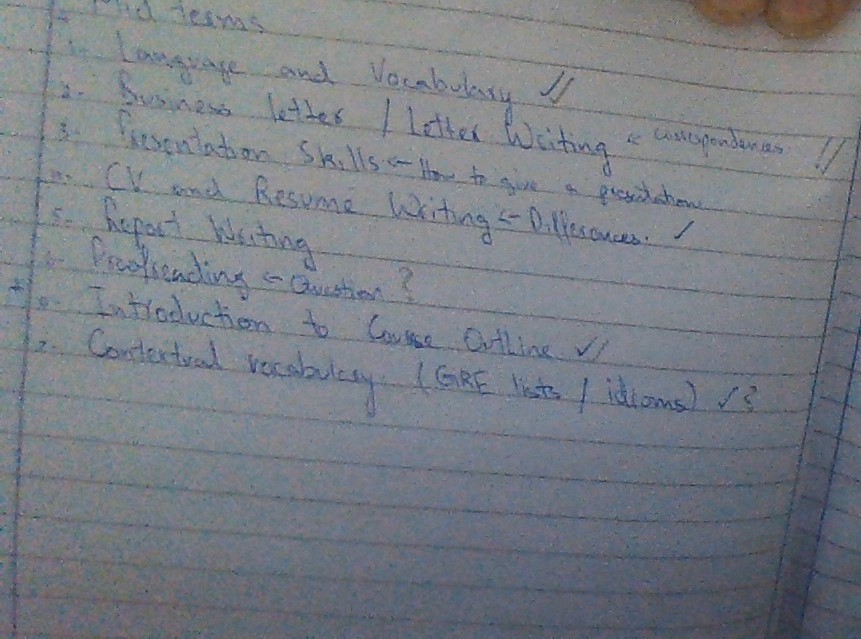 Mid terms
1. Language and Vocabulary //
2. Business letter / Letter Writing ← correspondences //
3. Presentation Skills ← How to give a presentation
4. CV and Resume Writing ← Differences. ✓
5. Report Writing
6. Proofreading ← Question?
* 0. Introduction to Course Outline ✓/
7. Contextual vocabulary (GRE lists / idioms) ✓?